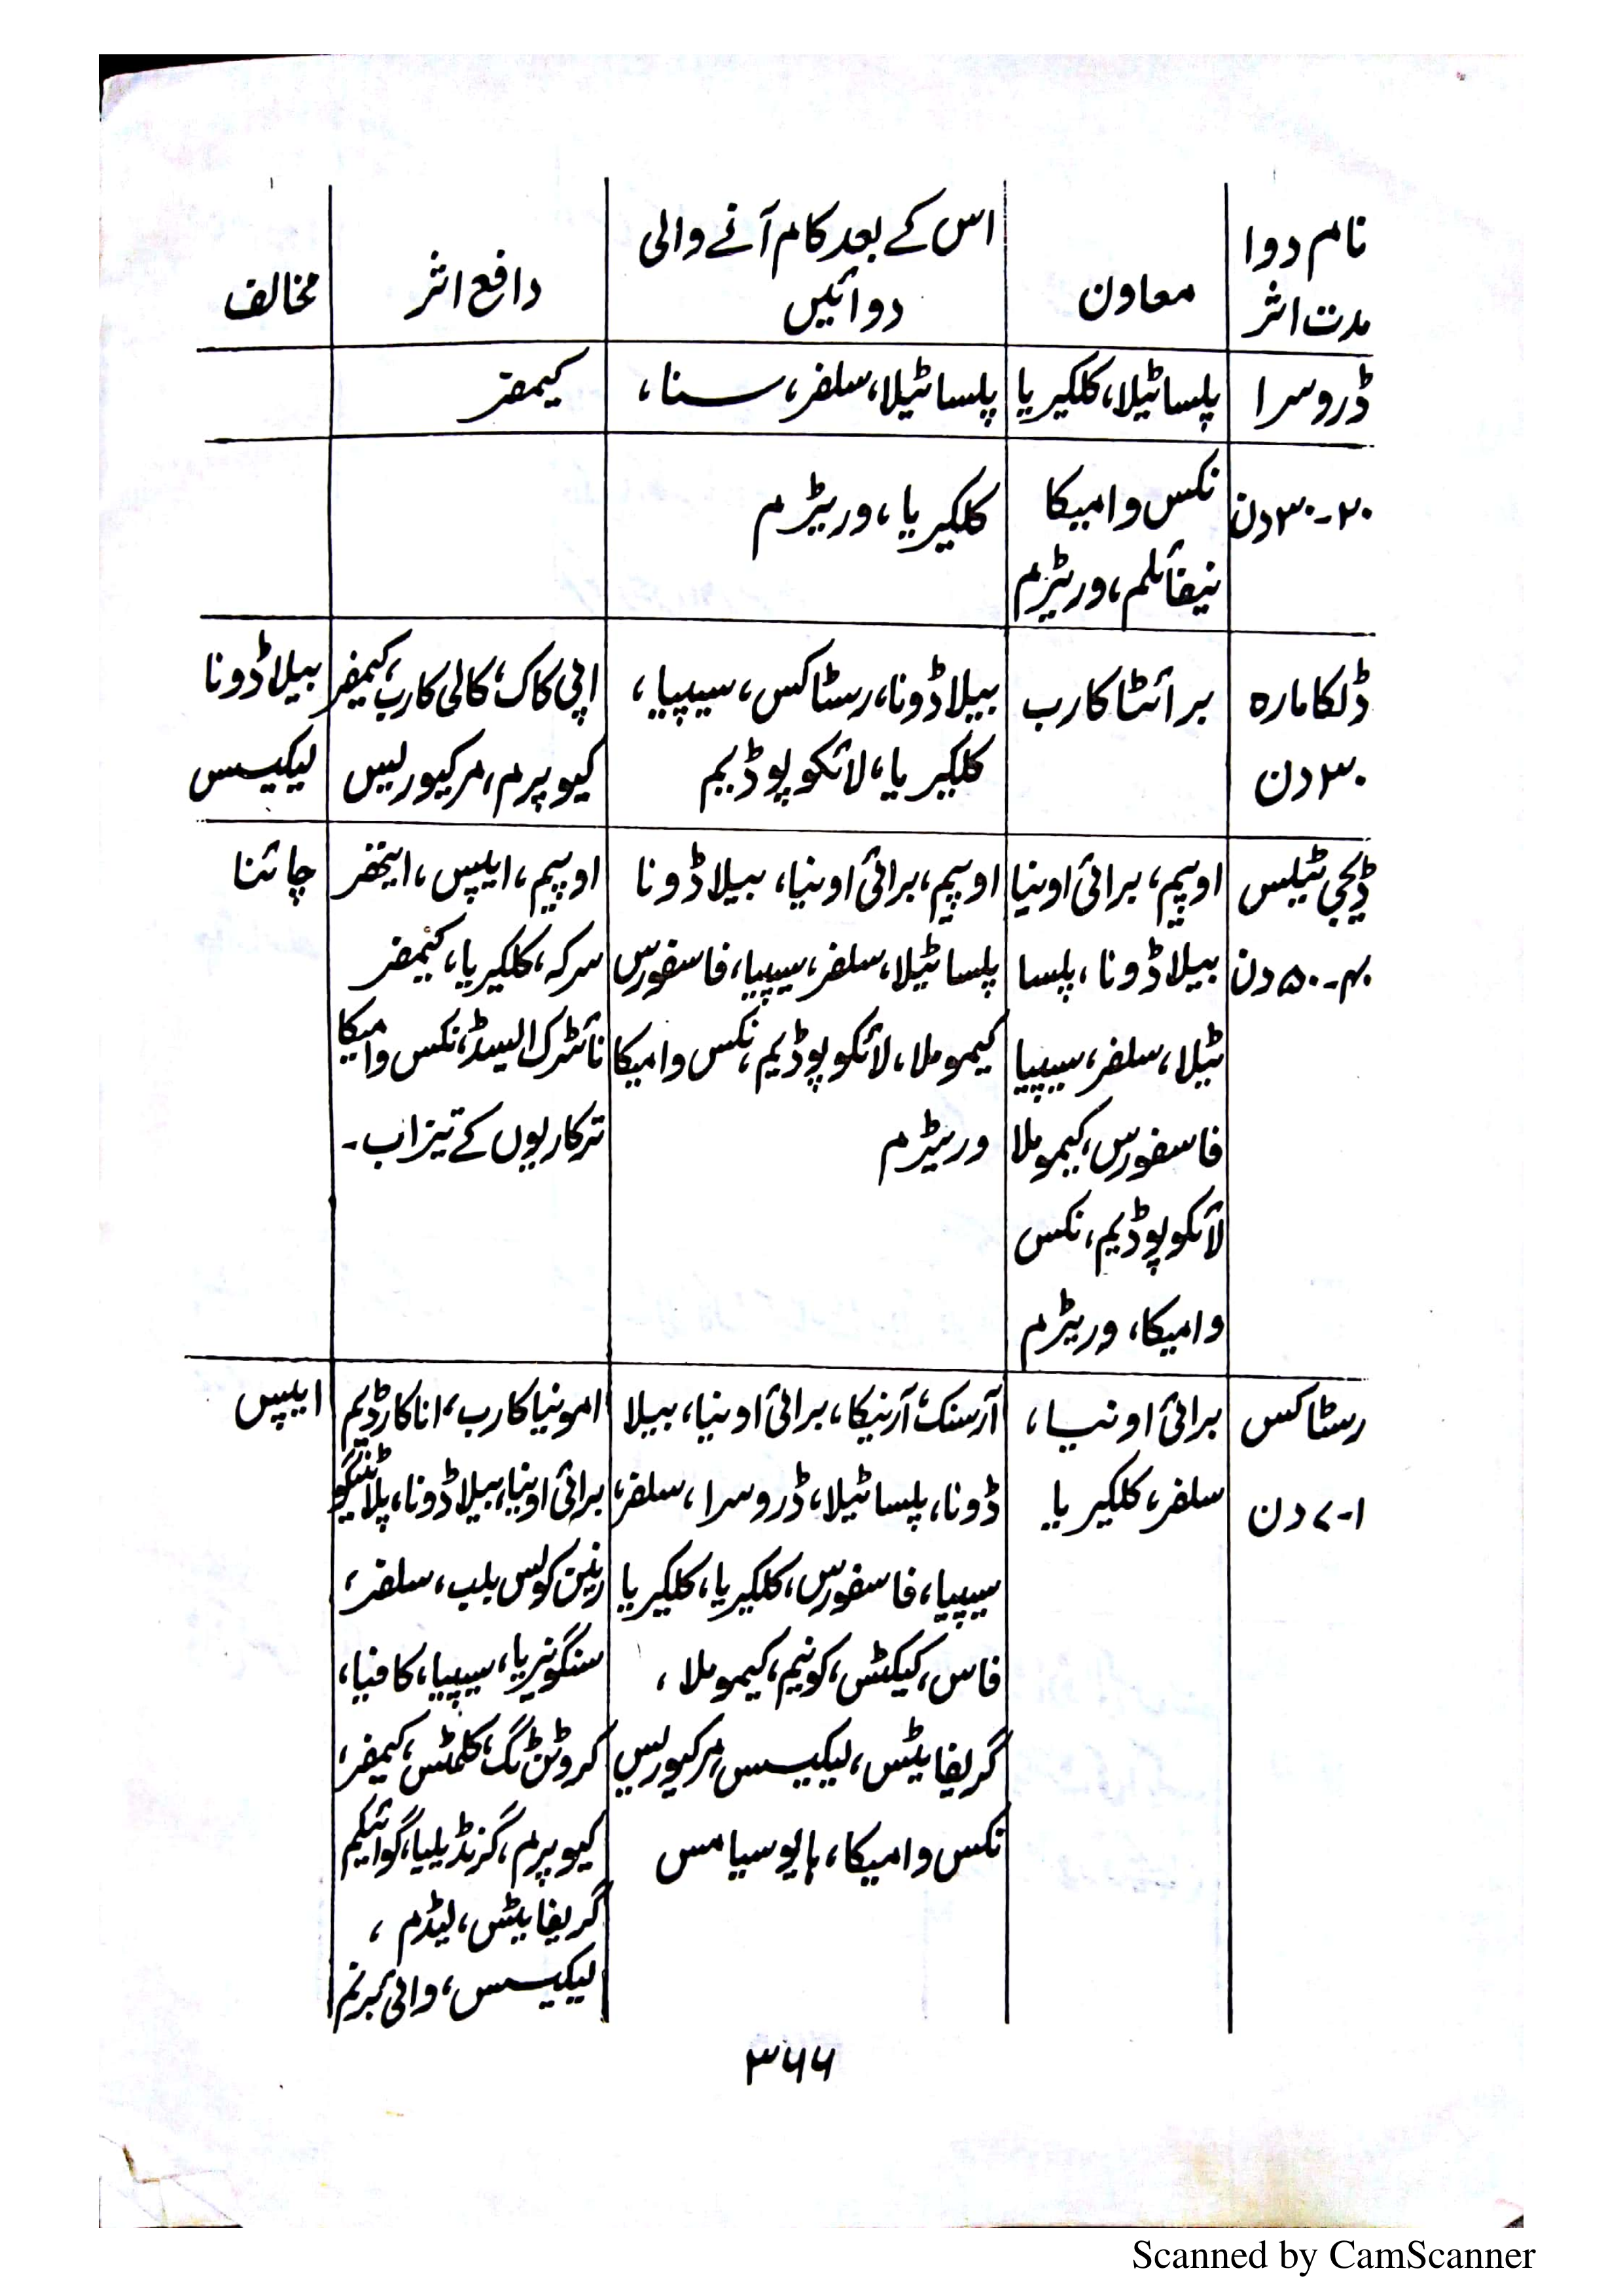 نام دوا
مدت اثر
معاون
اس کے بعد کام آنے والی
دوائیں
دافع اثر
مخالف
ڈروسرا
پلساٹیلا، کلکیریا
پلساٹیلا، سلفر، سنا،
کیمفر
۲۰-۳۰ دن
نکس وامیکا
نیفائلم، وریٹرم
کلکیریا، وریٹرم
ڈلکامارہ
۳۰ دن
برائٹا کارب
بیلاڈونا، رسٹاکس، سیپیا،
کلکیریا، لائکوپوڈیم
اپی کاک، کالی کارب، کیمفر
کیوپرم، مرکیورلیس
بیلاڈونا
لیکیسس
ڈیجی ٹیلس
۴۰-۵۰ دن
اوپیم، برائی اونیا
بیلاڈونا، پلسا
ٹیلا، سلفر، سیپیا
فاسفورس، کیموملا
لائکوپوڈیم، نکس
وامیکا، وریٹرم
اوپیم، برائی اونیا، بیلاڈونا
پلساٹیلا، سلفر، سیپیا، فاسفورس
کیموملا، لائکوپوڈیم، نکس وامیکا
وریٹرم
اوپیم، ایپس، ایتھر
سرکہ، کلکیریا، کیمفر
نائٹرک ایسڈ، نکس وامیکا
ترکاریوں کے تیزاب۔
چائنا
رسٹاکس
۱-۷ دن
برائی اونیا،
سلفر، کلکیریا
آرسنک، آرنیکا، برائی اونیا، بیلا
ڈونا، پلساٹیلا، ڈروسرا، سلفر،
سیپیا، فاسفورس، کلکیریا، کلکیریا
فاس، کیکٹس، کونیم، کیموملا،
گریفائیٹس، لیکیسس، مرکیورلیس
نکس وامیکا، ہایوسیامس
امونیا کارب، اناکارڈیم
برائی اونیا، بیلاڈونا، پلانٹیگو
رینن کولس بلب، سلفر،
سنگونیریا، سیپیا، کافیا،
کروٹن ٹگ، کلمٹس، کیمفر،
کیوپرم، گرنڈیلیا، گوائیکم
گریفائیٹس، لیڈم،
لیکیسس، وائی برنم
ایپس
۳۶۶
Scanned by CamScanner